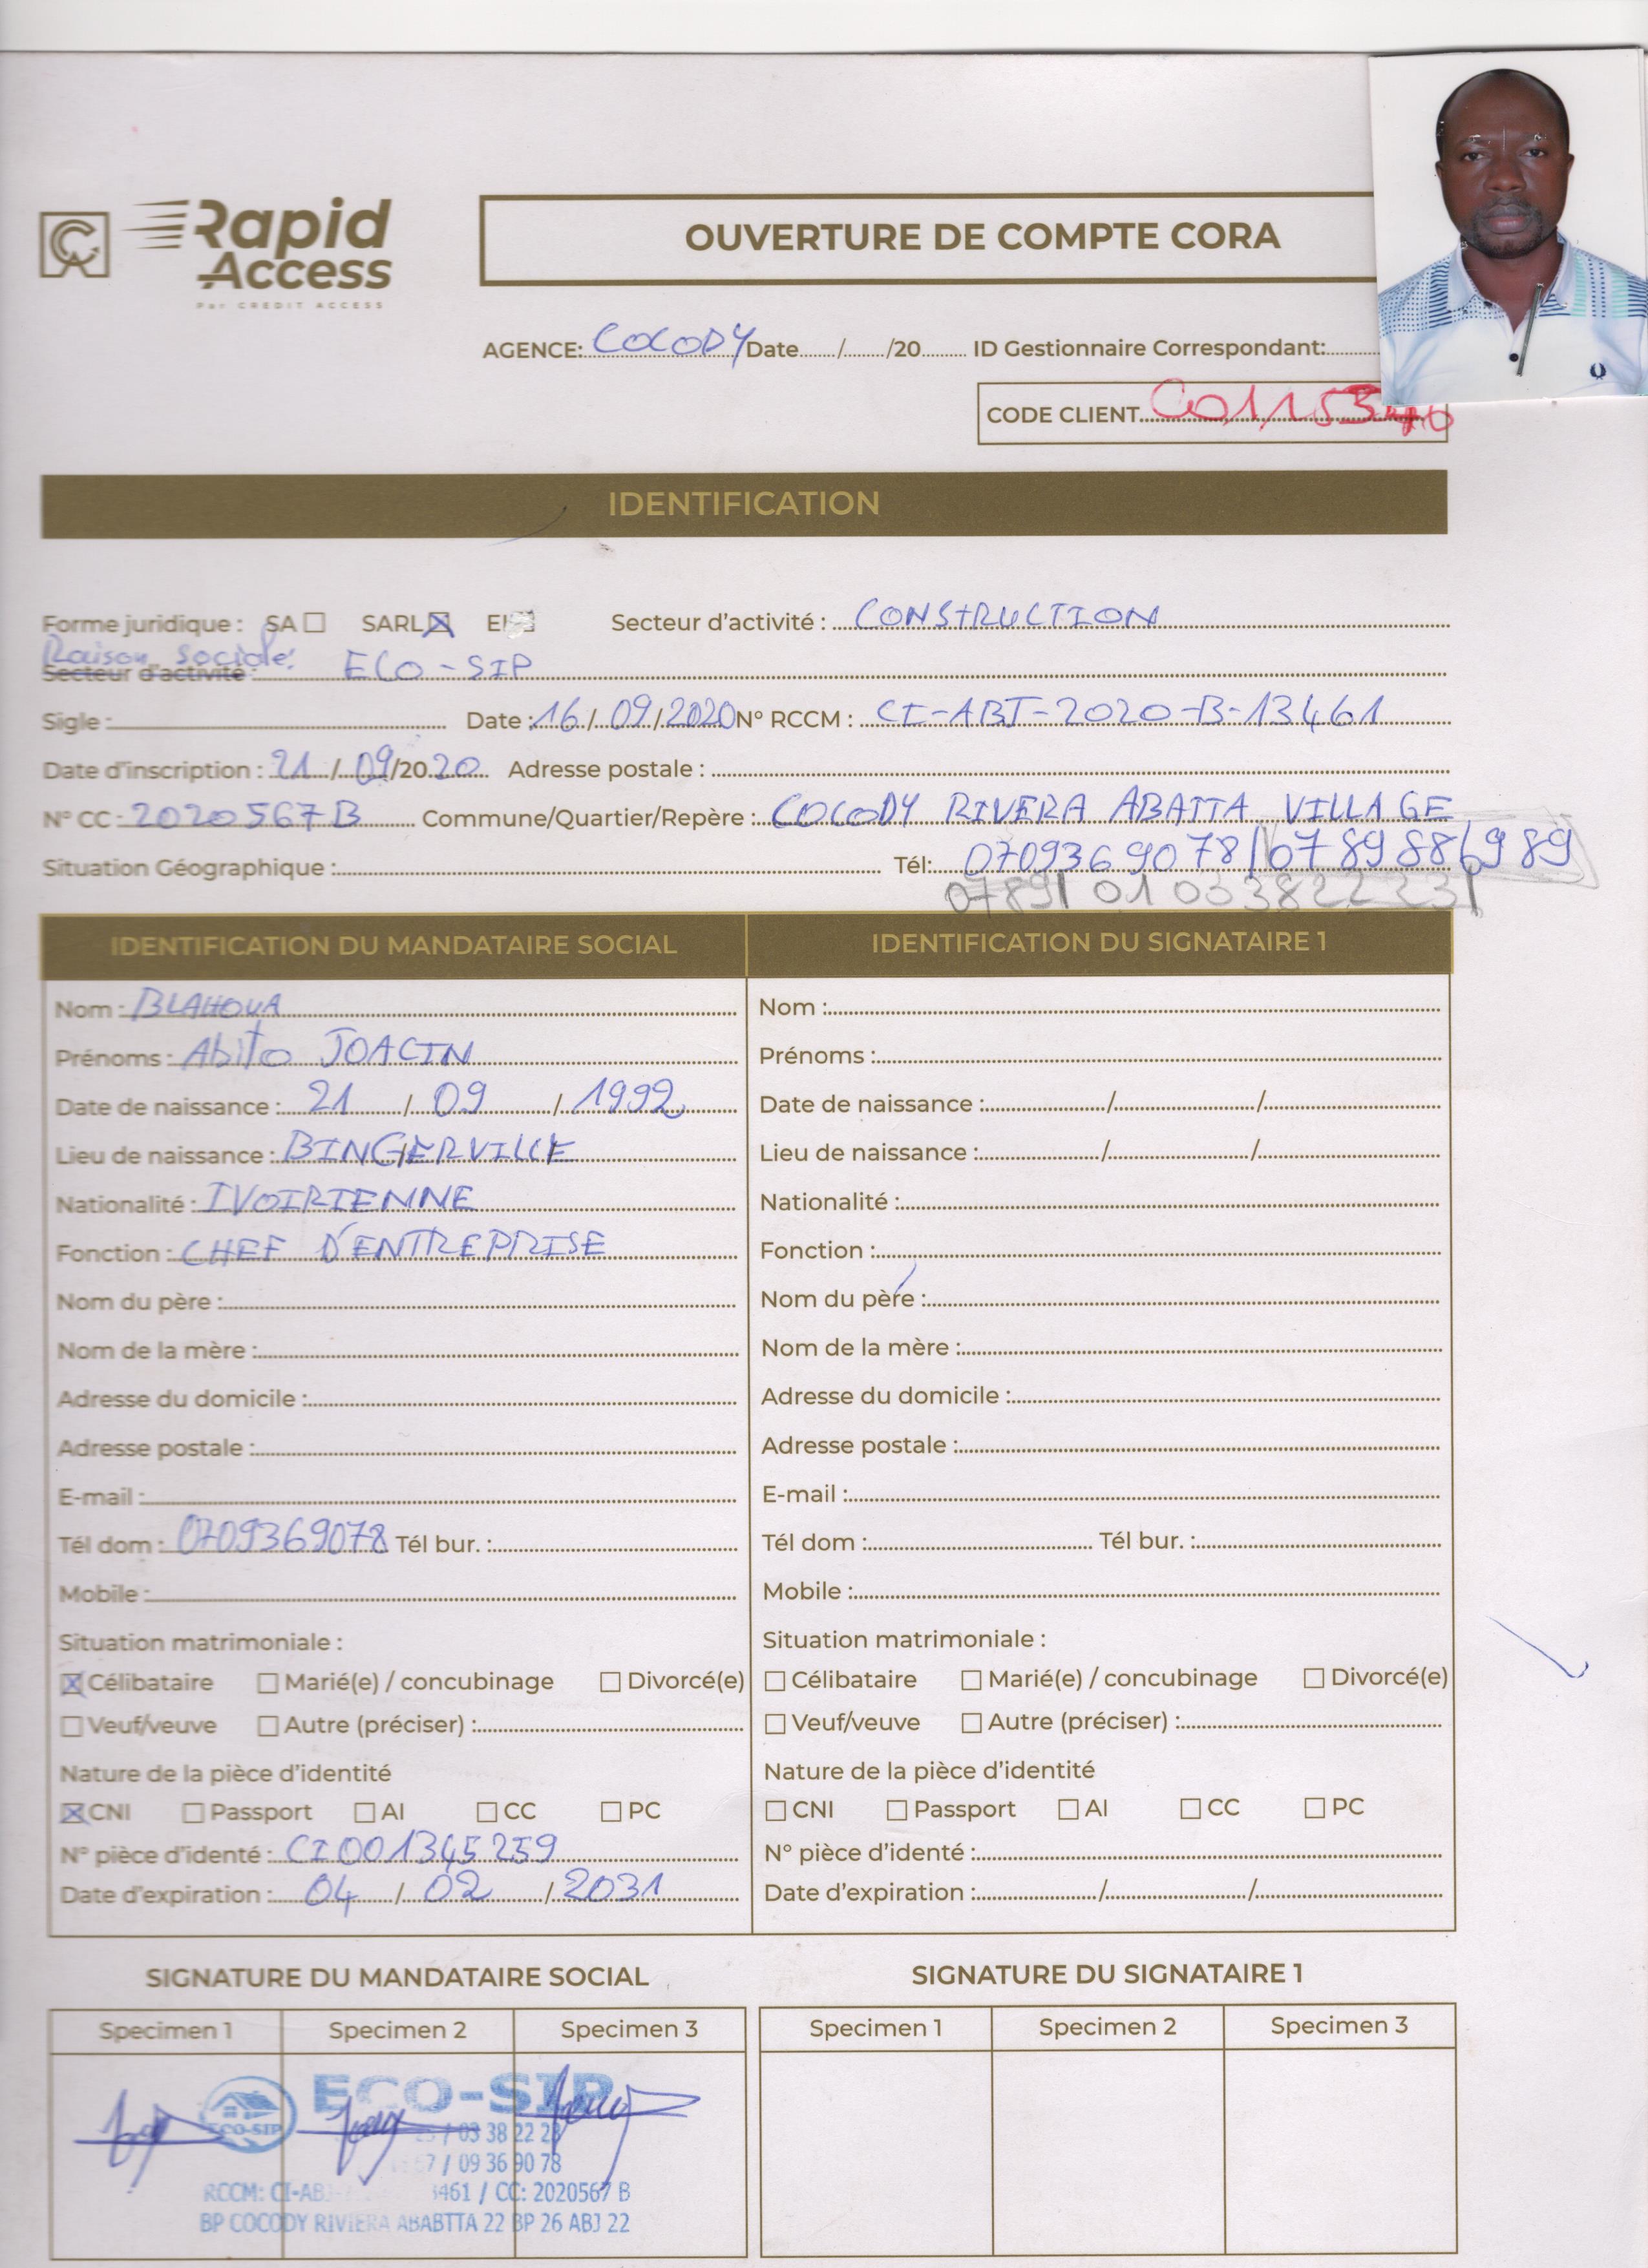 Rapid
Access
Par CREDIT ACCESS
OUVERTURE DE COMPTE CORA
AGENCE: COCODY Date......./......./20......... ID Gestionnaire Correspondant:
CODE CLIENT
IDENTIFICATION
Forme juridique : SA ☐ SARL ☒ EI Secteur d'activité : CONSTRUCTION
Raison sociale:
Secteur d'activité : ECO-SIP
Sigle : Date : 16/09/2020 N° RCCM : CI-ABJ-2020-B-13461
Date d'inscription : 21/09/2020 Adresse postale :
N° CC : 2020567B Commune/Quartier/Repère : COCODY RIVERA ABATTA VILLAGE
Situation Géographique : Tél: 0709369078/0789886989
0789 0103382223
IDENTIFICATION DU MANDATAIRE SOCIAL
Nom : BLAHOUA
Prénoms : Abito JOACIN
Date de naissance : 21 / 09 / 1992
Lieu de naissance : BINGERVILLE
Nationalité : IVOIRIENNE
Fonction : CHEF D'ENTREPRISE
Nom du père :
Nom de la mère :
Adresse du domicile :
Adresse postale :
E-mail :
Tél dom : 0709369078 Tél bur. :
Mobile :
Situation matrimoniale :
☒ Célibataire ☐ Marié(e) / concubinage ☐ Divorcé(e)
☐ Veuf/veuve ☐ Autre (préciser) :
Nature de la pièce d'identité
☒ CNI ☐ Passport ☐ AI ☐ CC ☐ PC
N° pièce d'identé : CI001345259
Date d'expiration : 04 / 02 / 2031
IDENTIFICATION DU SIGNATAIRE 1
Nom :
Prénoms :
Date de naissance : / /
Lieu de naissance : / /
Nationalité :
Fonction :
Nom du père :
Nom de la mère :
Adresse du domicile :
Adresse postale :
E-mail :
Tél dom : Tél bur. :
Mobile :
Situation matrimoniale :
☐ Célibataire ☐ Marié(e) / concubinage ☐ Divorcé(e)
☐ Veuf/veuve ☐ Autre (préciser) :
Nature de la pièce d'identité
☐ CNI ☐ Passport ☐ AI ☐ CC ☐ PC
N° pièce d'identé :
Date d'expiration : / /
SIGNATURE DU MANDATAIRE SOCIAL
Specimen 1 Specimen 2 Specimen 3
ECO-SIP
ECO-SIP
/ 03 38 22 23
/ 09 36 90 78
RCCM: CI-ABJ- 3461 / CC: 2020567 B
BP COCODY RIVIERA ABABTTA 22 BP 26 ABJ 22
SIGNATURE DU SIGNATAIRE 1
Specimen 1 Specimen 2 Specimen 3